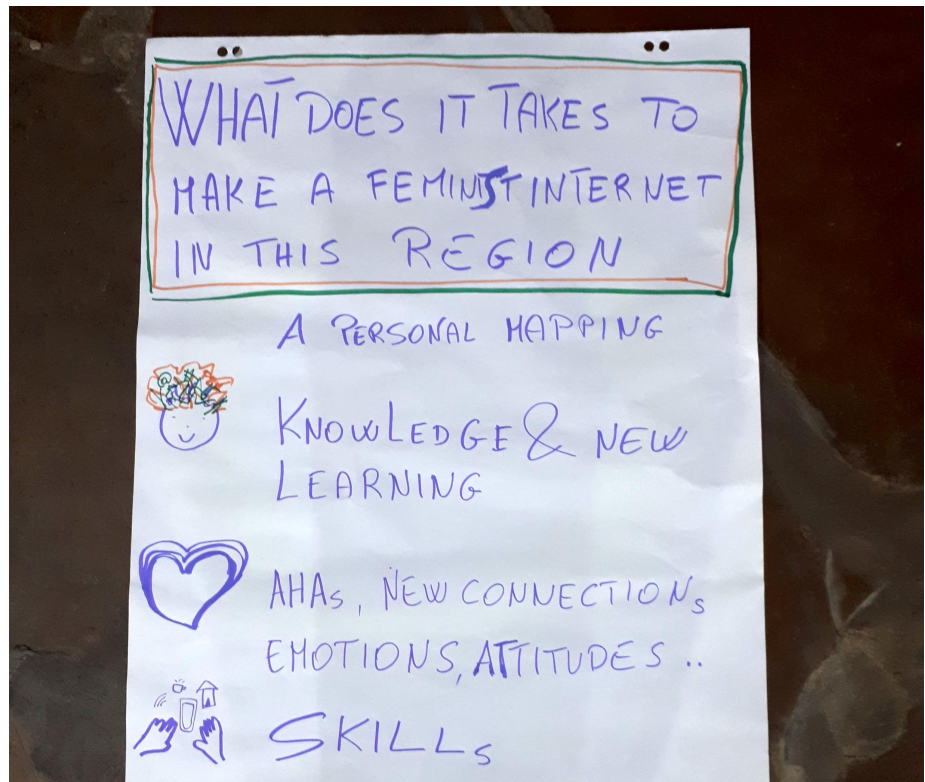 WHAT DOES IT TAKES TO
MAKE A FEMINIST INTERNET
IN THIS REGION
A PERSONAL MAPPING
KNOWLEDGE & NEW
LEARNING
AHAs, NEW CONNECTIONs
EMOTIONS, ATTITUDES ..
SKILLs